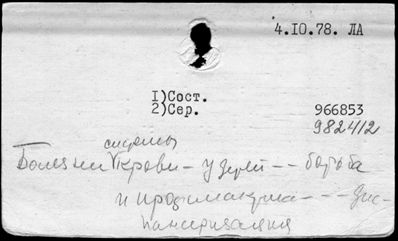 4.IO.78. ЛА
I)Сост.
2)Сер.
966853
9824/2
системы
Болезни крови – у детей – – борьба
и профилактика – – – дис-
пансеризация